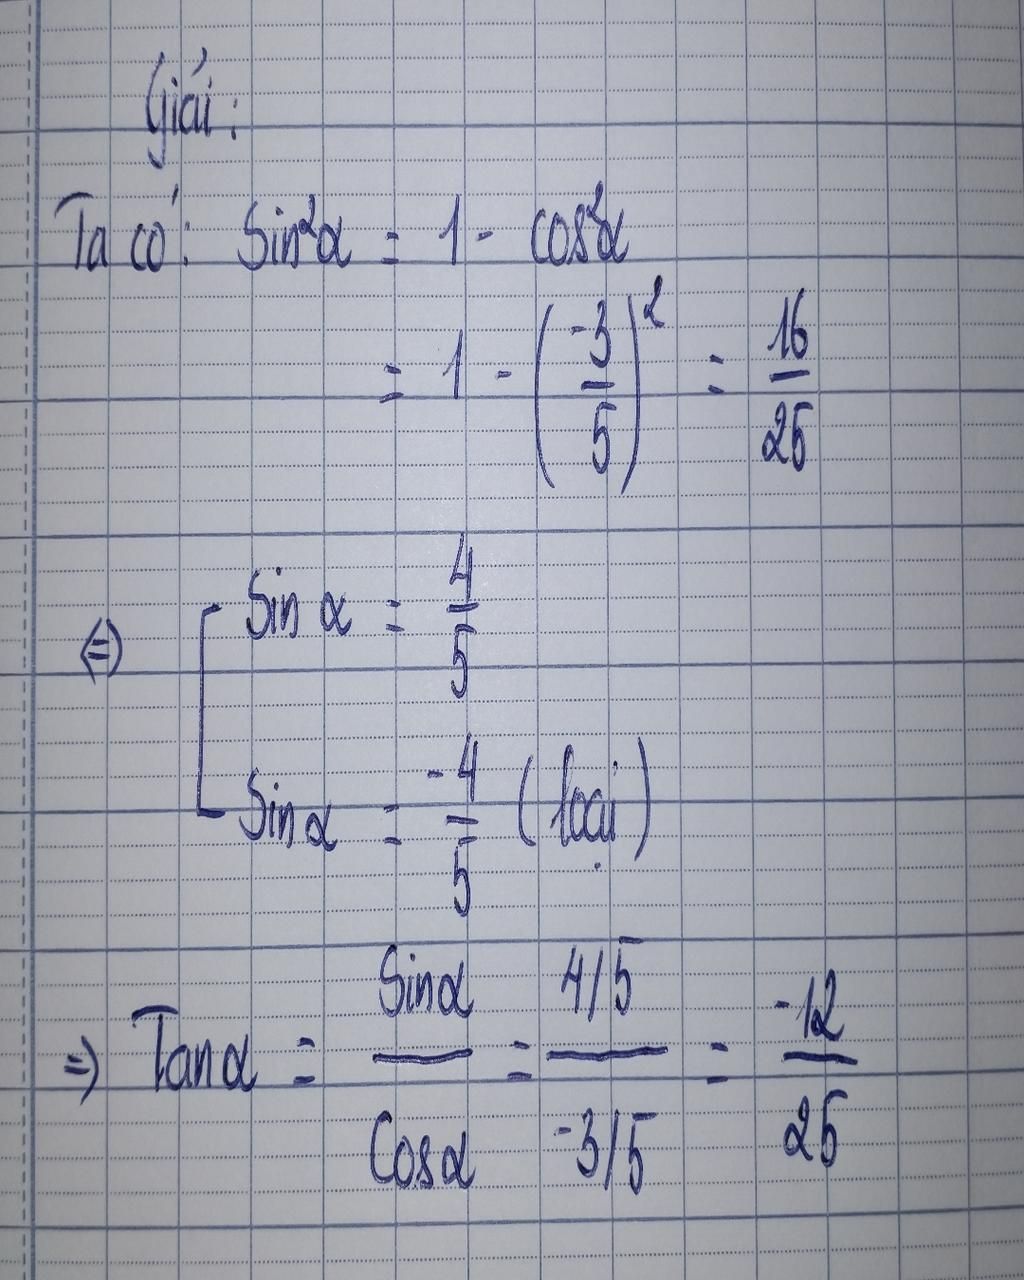 Giải:
Ta có: Sin²α = 1 - cos²α
= 1 - (-3/5)² = 16/25
⇔ [ Sin α = 4/5
Sin α = -4/5 (loại)
=> Tan α = Sin α / Cos α = (4/5) / (-3/5) = -12/25